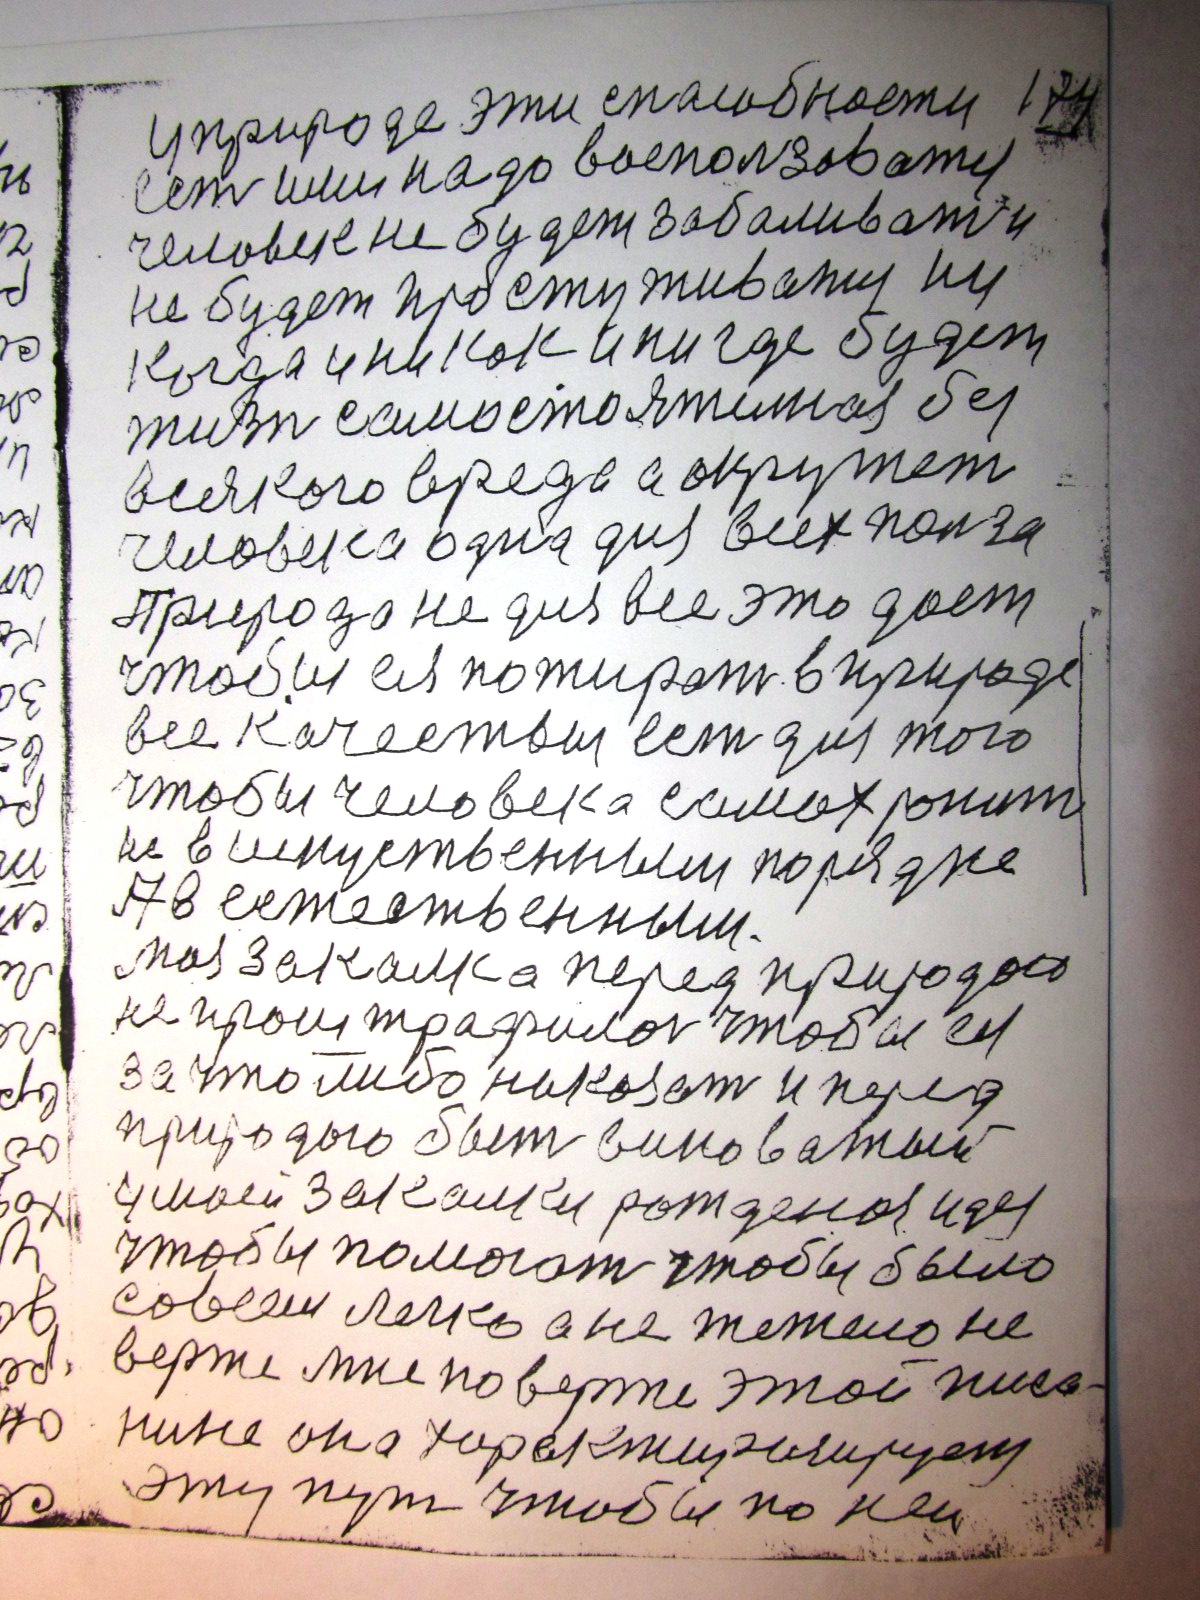 174
У природе эти способности
ест ими надо воспользоватц
человек не будет забаливат и
не будет простуживатц ни
когда и ни как и ни где будет
жизн самостоятелная без
всякого вреда а окружает
человека одна для всех полза
Природа не для все это дает
чтобы ея пожират в природе
все качествы ест для того
чтобы человека самохронит
не в искуственным порядке
А в естественным.
Моя закалка перед природою
не проштрафилас чтобы ея
за что либо наказат и перед
природою быт виноватый
у моей закалки рождения идея
чтобы помогат чтобы было
совсем легко а не тежело не
верте мне поверте этой писа-
нине она характиризирует
эту пут чтобы по ней